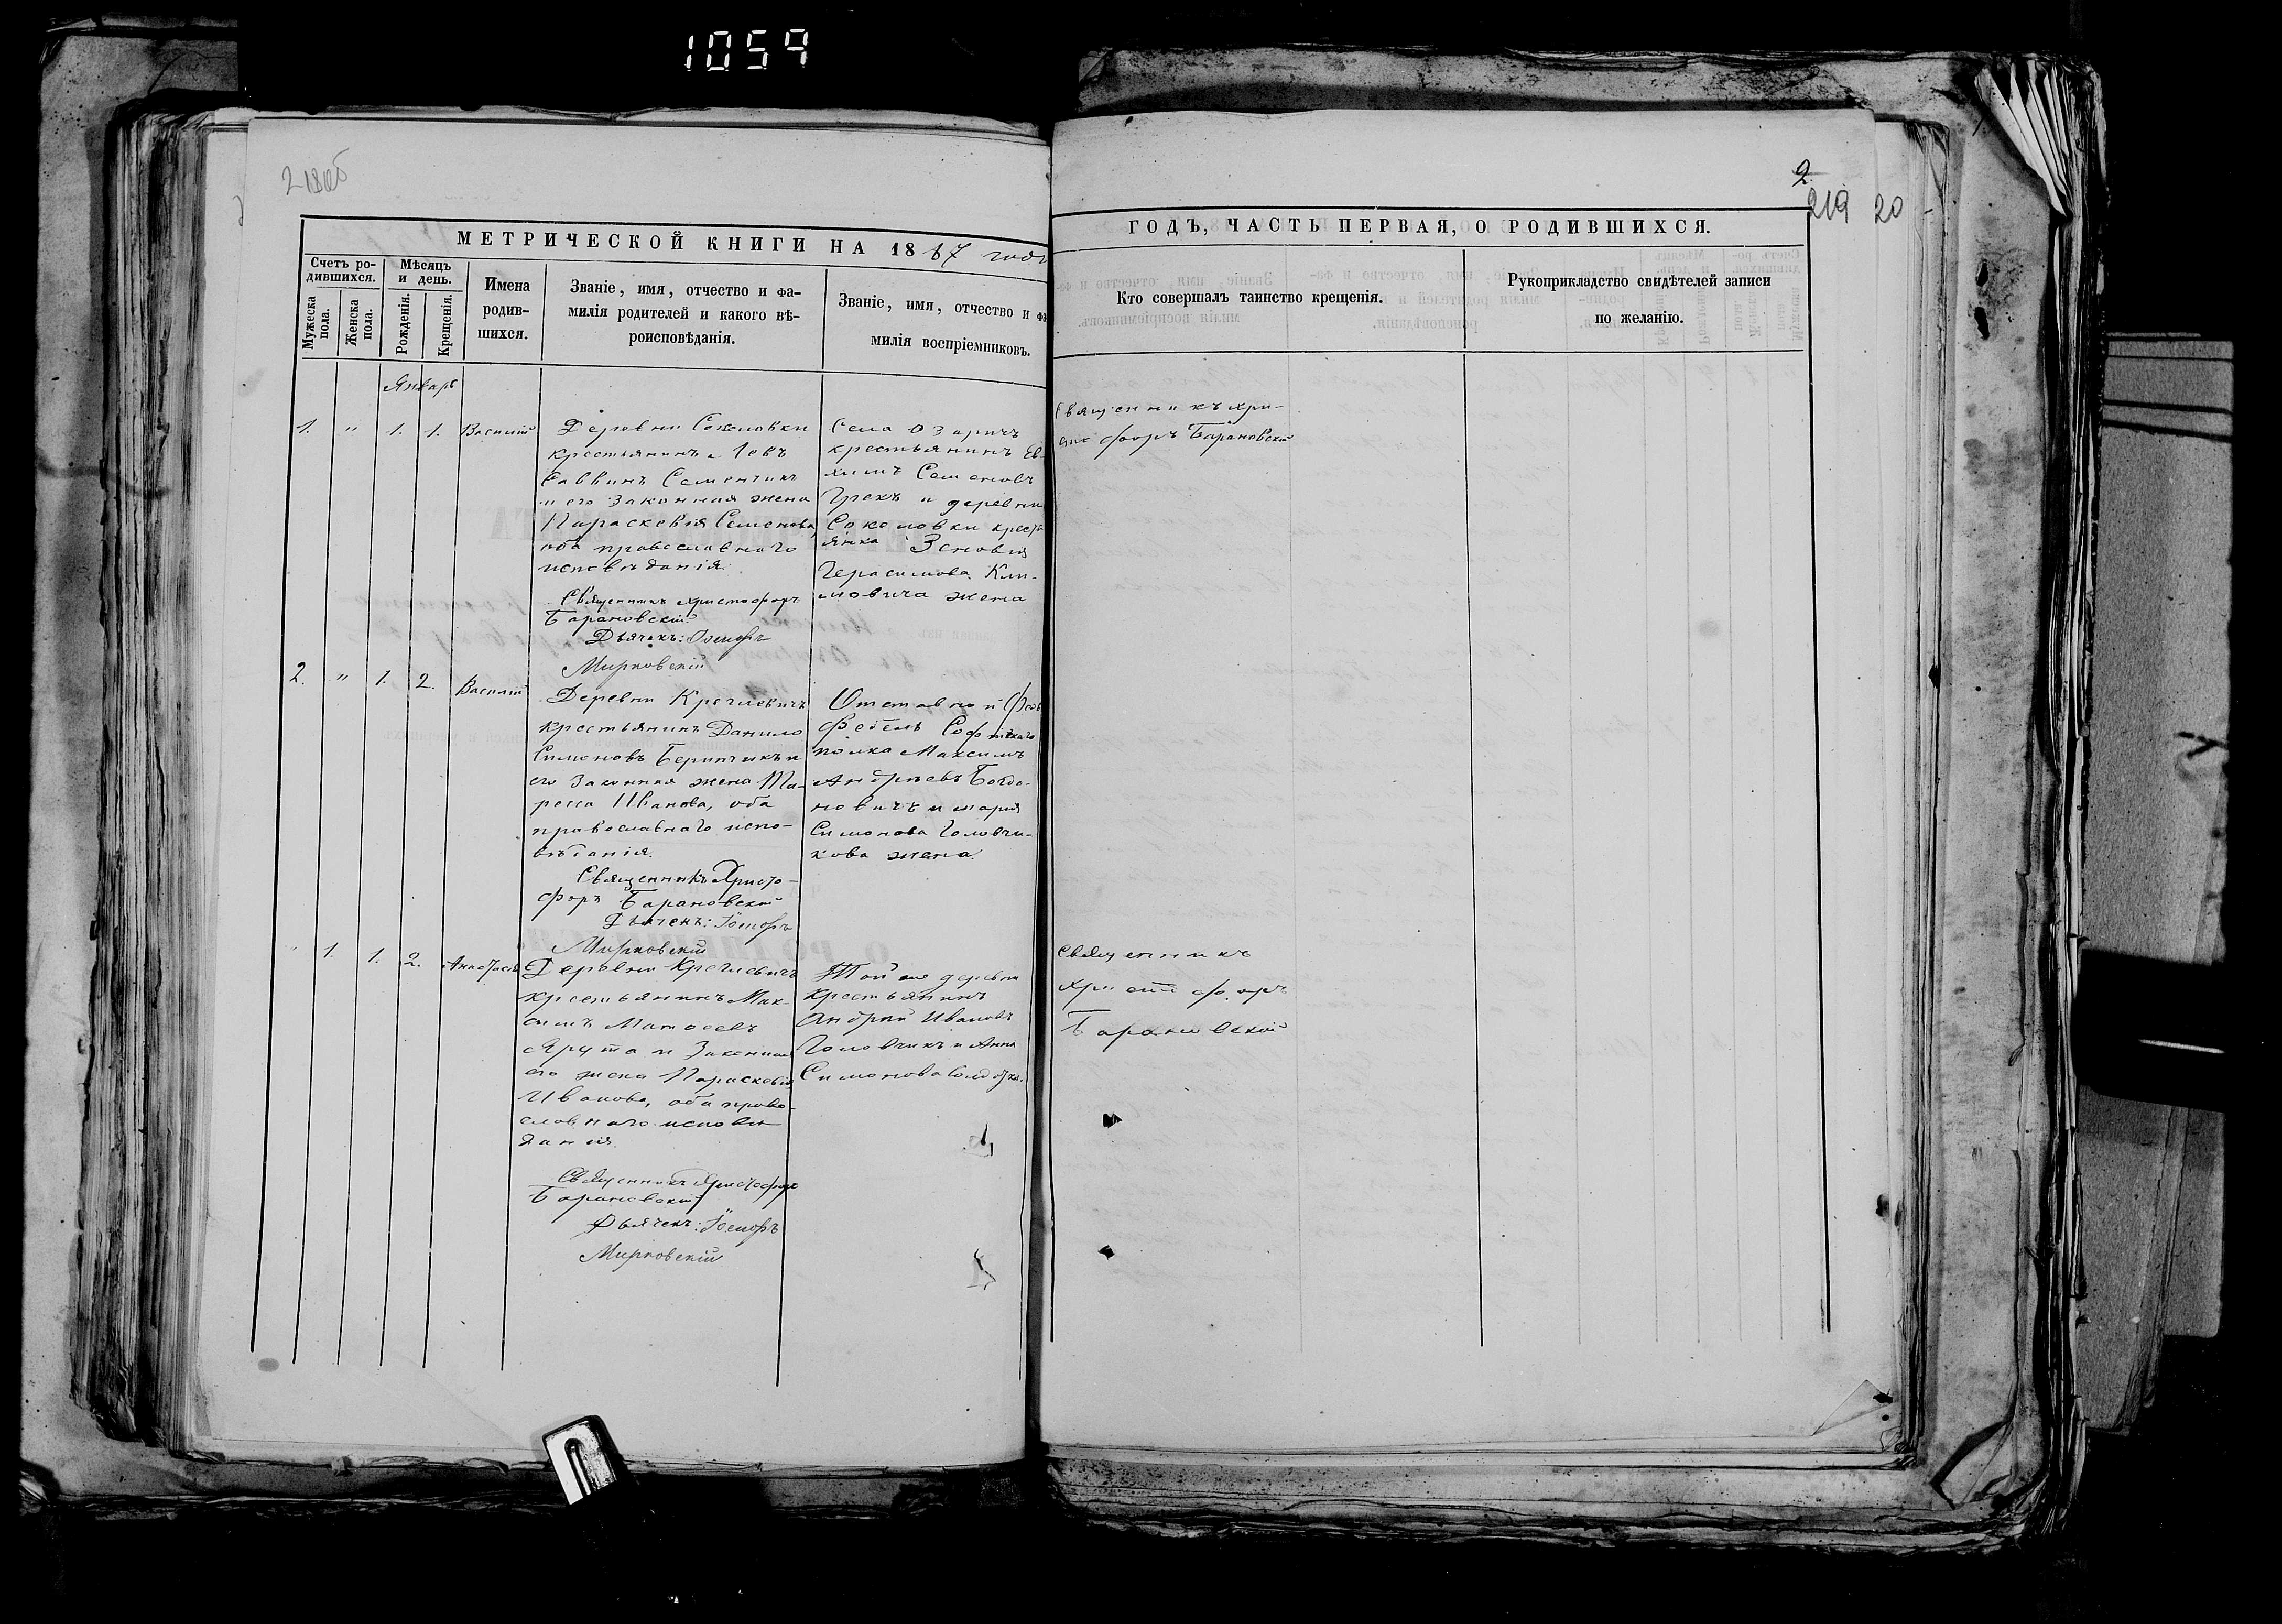 1059
218об
2.
219 20
МЕТРИЧЕСКОЙ КНИГИ НА 1867 года
ГОДЪ, ЧАСТЬ ПЕРВАЯ, О РОДИВШИХСЯ.
Счетъ ро-
дившихся.
Мужеска
пола.
Женска
пола.
Мѣсяцъ
и день.
Рожденія.
Крещенія.
Имена
родив-
шихся.
Званіе, имя, отчество и фа-
милія родителей и какого вѣ-
роисповѣданія.
Званіе, имя, отчество и фа
милія воспріемниковъ.
Кто совершалъ таинство крещенія.
Рукоприкладство свидѣтелей записи
по желанію.
Январь
1. " 1. 1. Василій
Деревни Соколовки
крестьянинъ Іовъ
Саввинъ Семенчикъ
и его законная жена
Параскевія Семенова,
оба православнаго
исповѣданія.
Священникъ Христофоръ
Барановскій
Дьячекъ:
Мирковскій
Села Озаричъ
крестьянинъ Ев-
химъ Семеновъ
Грекъ и деревни
Соколовки кресть
янка Зеновія
Герасимова Кли-
мовича жена
Священникъ Хри-
стофоръ Барановскій
2. " 1. 2. Василій
Деревни Кречлевичъ
крестьянинъ Данило
Симоновъ и
его законная жена Ма-
Иванова, оба
православнаго испо-
вѣданія.
Священникъ Христо-
форъ Барановскій
Дьячекъ:
Мирковскій
Отставной
фебель
полка Максимъ
Андреевъ Богда-
новичъ и Марія
Симонова Головчи-
кова жена.
" 1. 1. 2. Анастасія
Деревни Кречлевичъ
крестьянинъ Мак-
симъ Матвеевъ
Ярута и законная
его жена Параскевія
Иванова, оба право-
славнаго исповѣ
данія.
Священникъ Христофоръ
Барановскій
Дьячекъ:
Мирковскій
Той же деревни
крестьянинъ
Андрей Ивановъ
Головчикъ и Анна
Симонова Солдатка.
Священникъ
Христофоръ
Барановскій